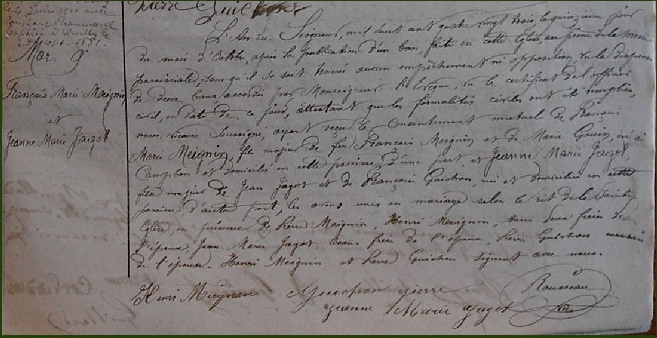 Mar. 9e
François Marie Meignin
et
Jeanne Marie Jagot
L'An du Seigneur, mil huit cent quatre vingt trois le quinzième jour
du mois d'Octobre, après la publication d'un ban, faite en cette Eglise, au prône de la messe
paroissiale, sans qu'il se soit trouvé aucun empêchement ni opposition, vu la dispense
de deux bans accordée par Monseigneur l'Evêque, vu le certificat de l'officier
civil, en date de ce jour, attestant que les formalités civiles ont été remplies,
nous vicaire soussigné, ayant reçu le consentement mutuel de François
Marie Meignin, fils majeur de feu François Meignin et de Marie Gouin, né à
Campbon et domicilié en cette paroisse, d'une part et Jeanne Marie Jagot,
fille majeure de Jean Jagot et de Françoise Guichon, née et domiciliée en cette
paroisse d'autre part, les avons unis en mariage selon le rit de la Sainte
Eglise, en présence de Pierre Meignin, Henri Meignin, tous deux frères de
l'époux, Jean Marie Jagot frère de l'épouse, Pierre Guichon cousin
de l'épouse. Henri Meignin et Pierre Guichon signent avec nous.
Henri Meignen Guichon pierre Rousseau
Jeanne Marie Jagot